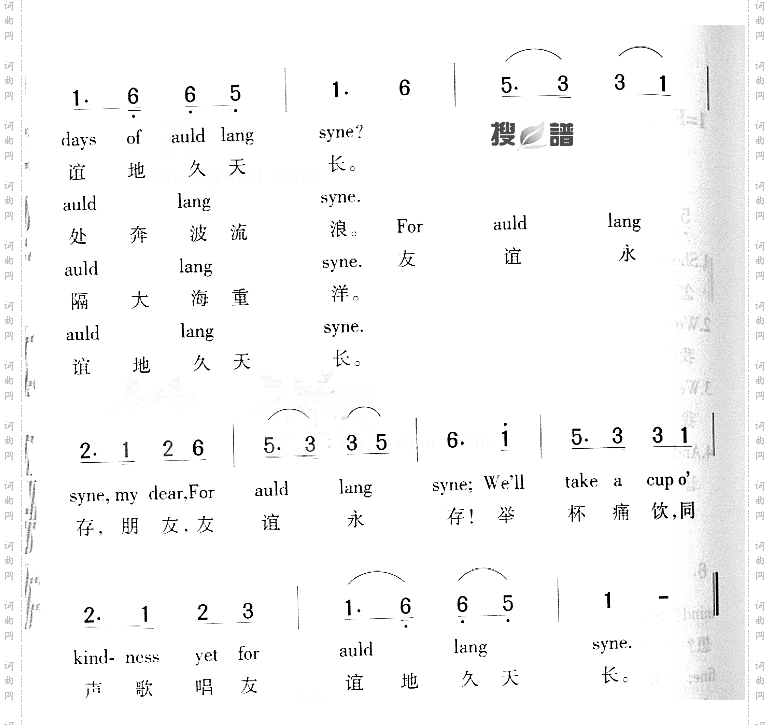 1. 6 6 5 | 1. 6 | 5. 3 3 1 |
搜 譜
days of auld lang syne?
谊 地 久 天 长。
auld lang syne.
处 奔 波 流 浪。 For auld lang
auld lang syne. 友 谊 永
隔 大 海 重 洋。
auld lang syne.
谊 地 久 天 长。
2. 1 2 6 | 5. 3 3 5 | 6. 1 | 5. 3 3 1 |
syne, my dear, For auld lang syne; We'll take a cup o'
存, 朋 友, 友 谊 永 存! 举 杯 痛 饮, 同
2. 1 2 3 | 1. 6 6 5 | 1 -
kind- ness yet for auld lang syne.
声 歌 唱 友 谊 地 久 天 长。
词曲网